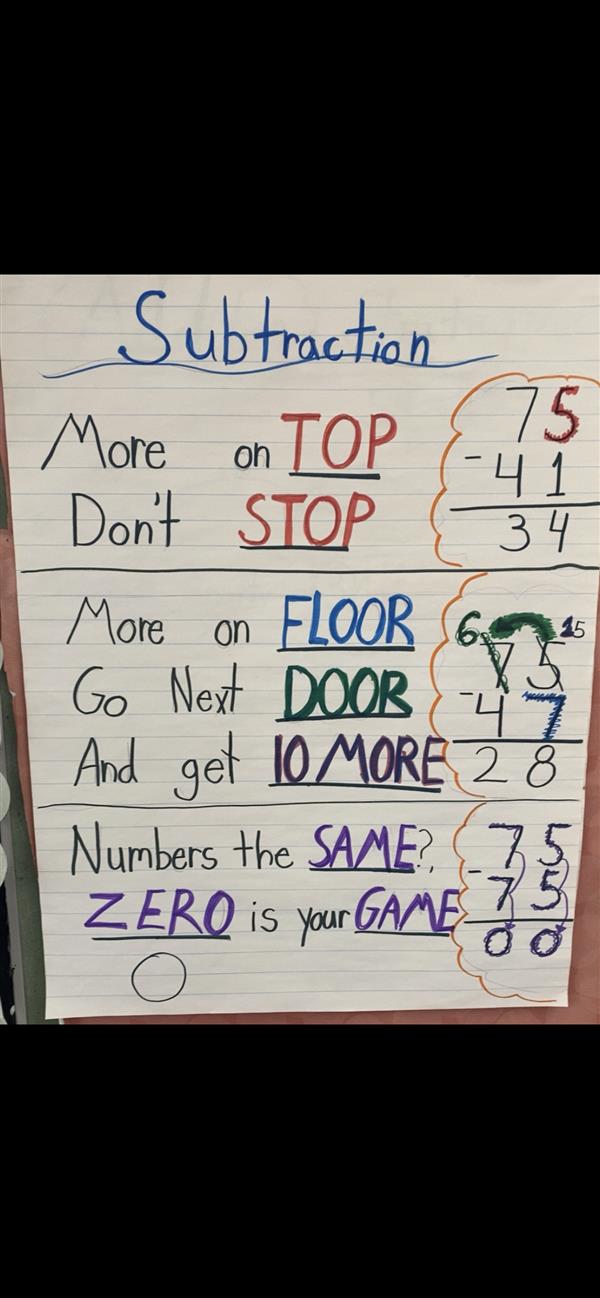 Subtraction
More on TOP
Don't STOP
75
-41
34
More on FLOOR
Go Next DOOR
And get 10 MORE
6 15
75
-47
28
Numbers the SAME?,
ZERO is your GAME
0
75
-75
00